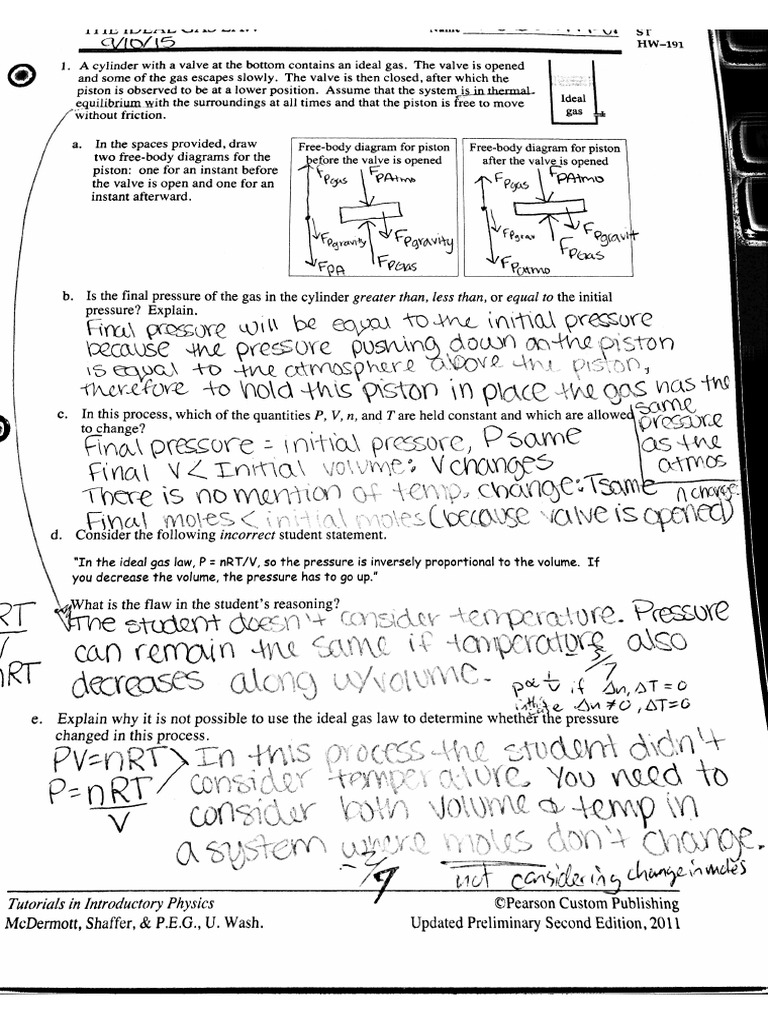 THE IDEAL GAS LAW
9/10/15
ST
HW–191
1. A cylinder with a valve at the bottom contains an ideal gas. The valve is opened
and some of the gas escapes slowly. The valve is then closed, after which the
piston is observed to be at a lower position. Assume that the system is in thermal
equilibrium with the surroundings at all times and that the piston is free to move
without friction.
Ideal
gas
a. In the spaces provided, draw
two free-body diagrams for the
piston: one for an instant before
the valve is open and one for an
instant afterward.
Free-body diagram for piston
before the valve is opened
FPgas FPAtmo
FPgravity FPgravity
FPA FPGas
Free-body diagram for piston
after the valve is opened
FPgas FPAtmo
FPgrav FPgravit
FPAtmo FPGas
b. Is the final pressure of the gas in the cylinder greater than, less than, or equal to the initial
pressure? Explain.
Final pressure will be equal to the initial pressure
because the pressure pushing down on the piston
is equal to the atmosphere above the piston,
therefore to hold this piston in place the gas has the
same
pressure
as the
atmos
c. In this process, which of the quantities P, V, n, and T are held constant and which are allowed
to change?
Final pressure = initial pressure, P same
Final V < Initial volume ∴ V changes
There is no mention of temp. change ∴ T same
n change
Final moles < initial moles (because valve is opened)
d. Consider the following incorrect student statement.
"In the ideal gas law, P = nRT/V, so the pressure is inversely proportional to the volume. If
you decrease the volume, the pressure has to go up."
What is the flaw in the student's reasoning?
RT
V
nRT
The student doesn't consider temperature. Pressure
can remain the same if temperature also
decreases along w/volume.
5/7
if Δn, ΔT = 0
Δn ≠ 0, ΔT = 0
e. Explain why it is not possible to use the ideal gas law to determine whether the pressure
changed in this process.
PV = nRT
P = nRT
V
In this process the student didn't
consider temperature. You need to
consider both volume & temp in
a system where moles don't change.
not considering change in moles
Tutorials in Introductory Physics
McDermott, Shaffer, & P.E.G., U. Wash.
©Pearson Custom Publishing
Updated Preliminary Second Edition, 2011